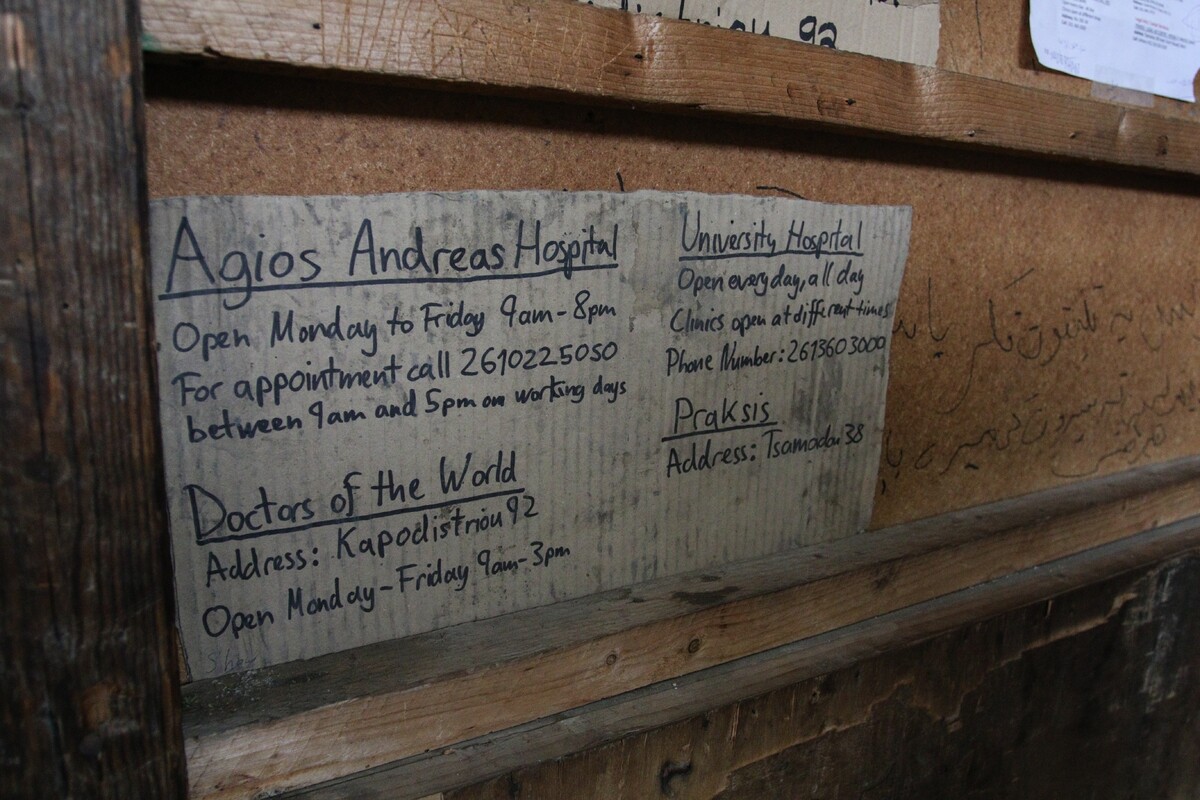 92
Agios Andreas Hospital
Open Monday to Friday 9am-8pm
For appointment call 2610225050
between 9am and 5pm on working days
Doctors of the World
Address: Kapodistriou 92
Open Monday-Friday 9am-3pm
University Hospital
Open every day, all day
Clinics open at different times
Phone Number: 2613603000
Praksis
Address: Tsamadou 38